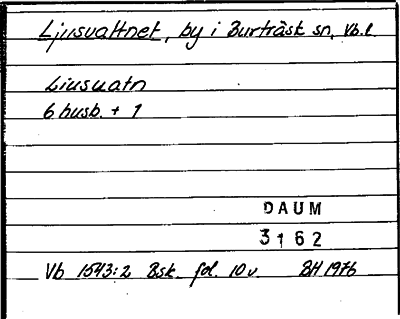 Ljusvattnet, by i Burträsk sn, Vb.l.
Liusuatn
6 husb. + 1
DAUM
3162
Vb 1543:2 Bsk. fol. 10v. BH 1976